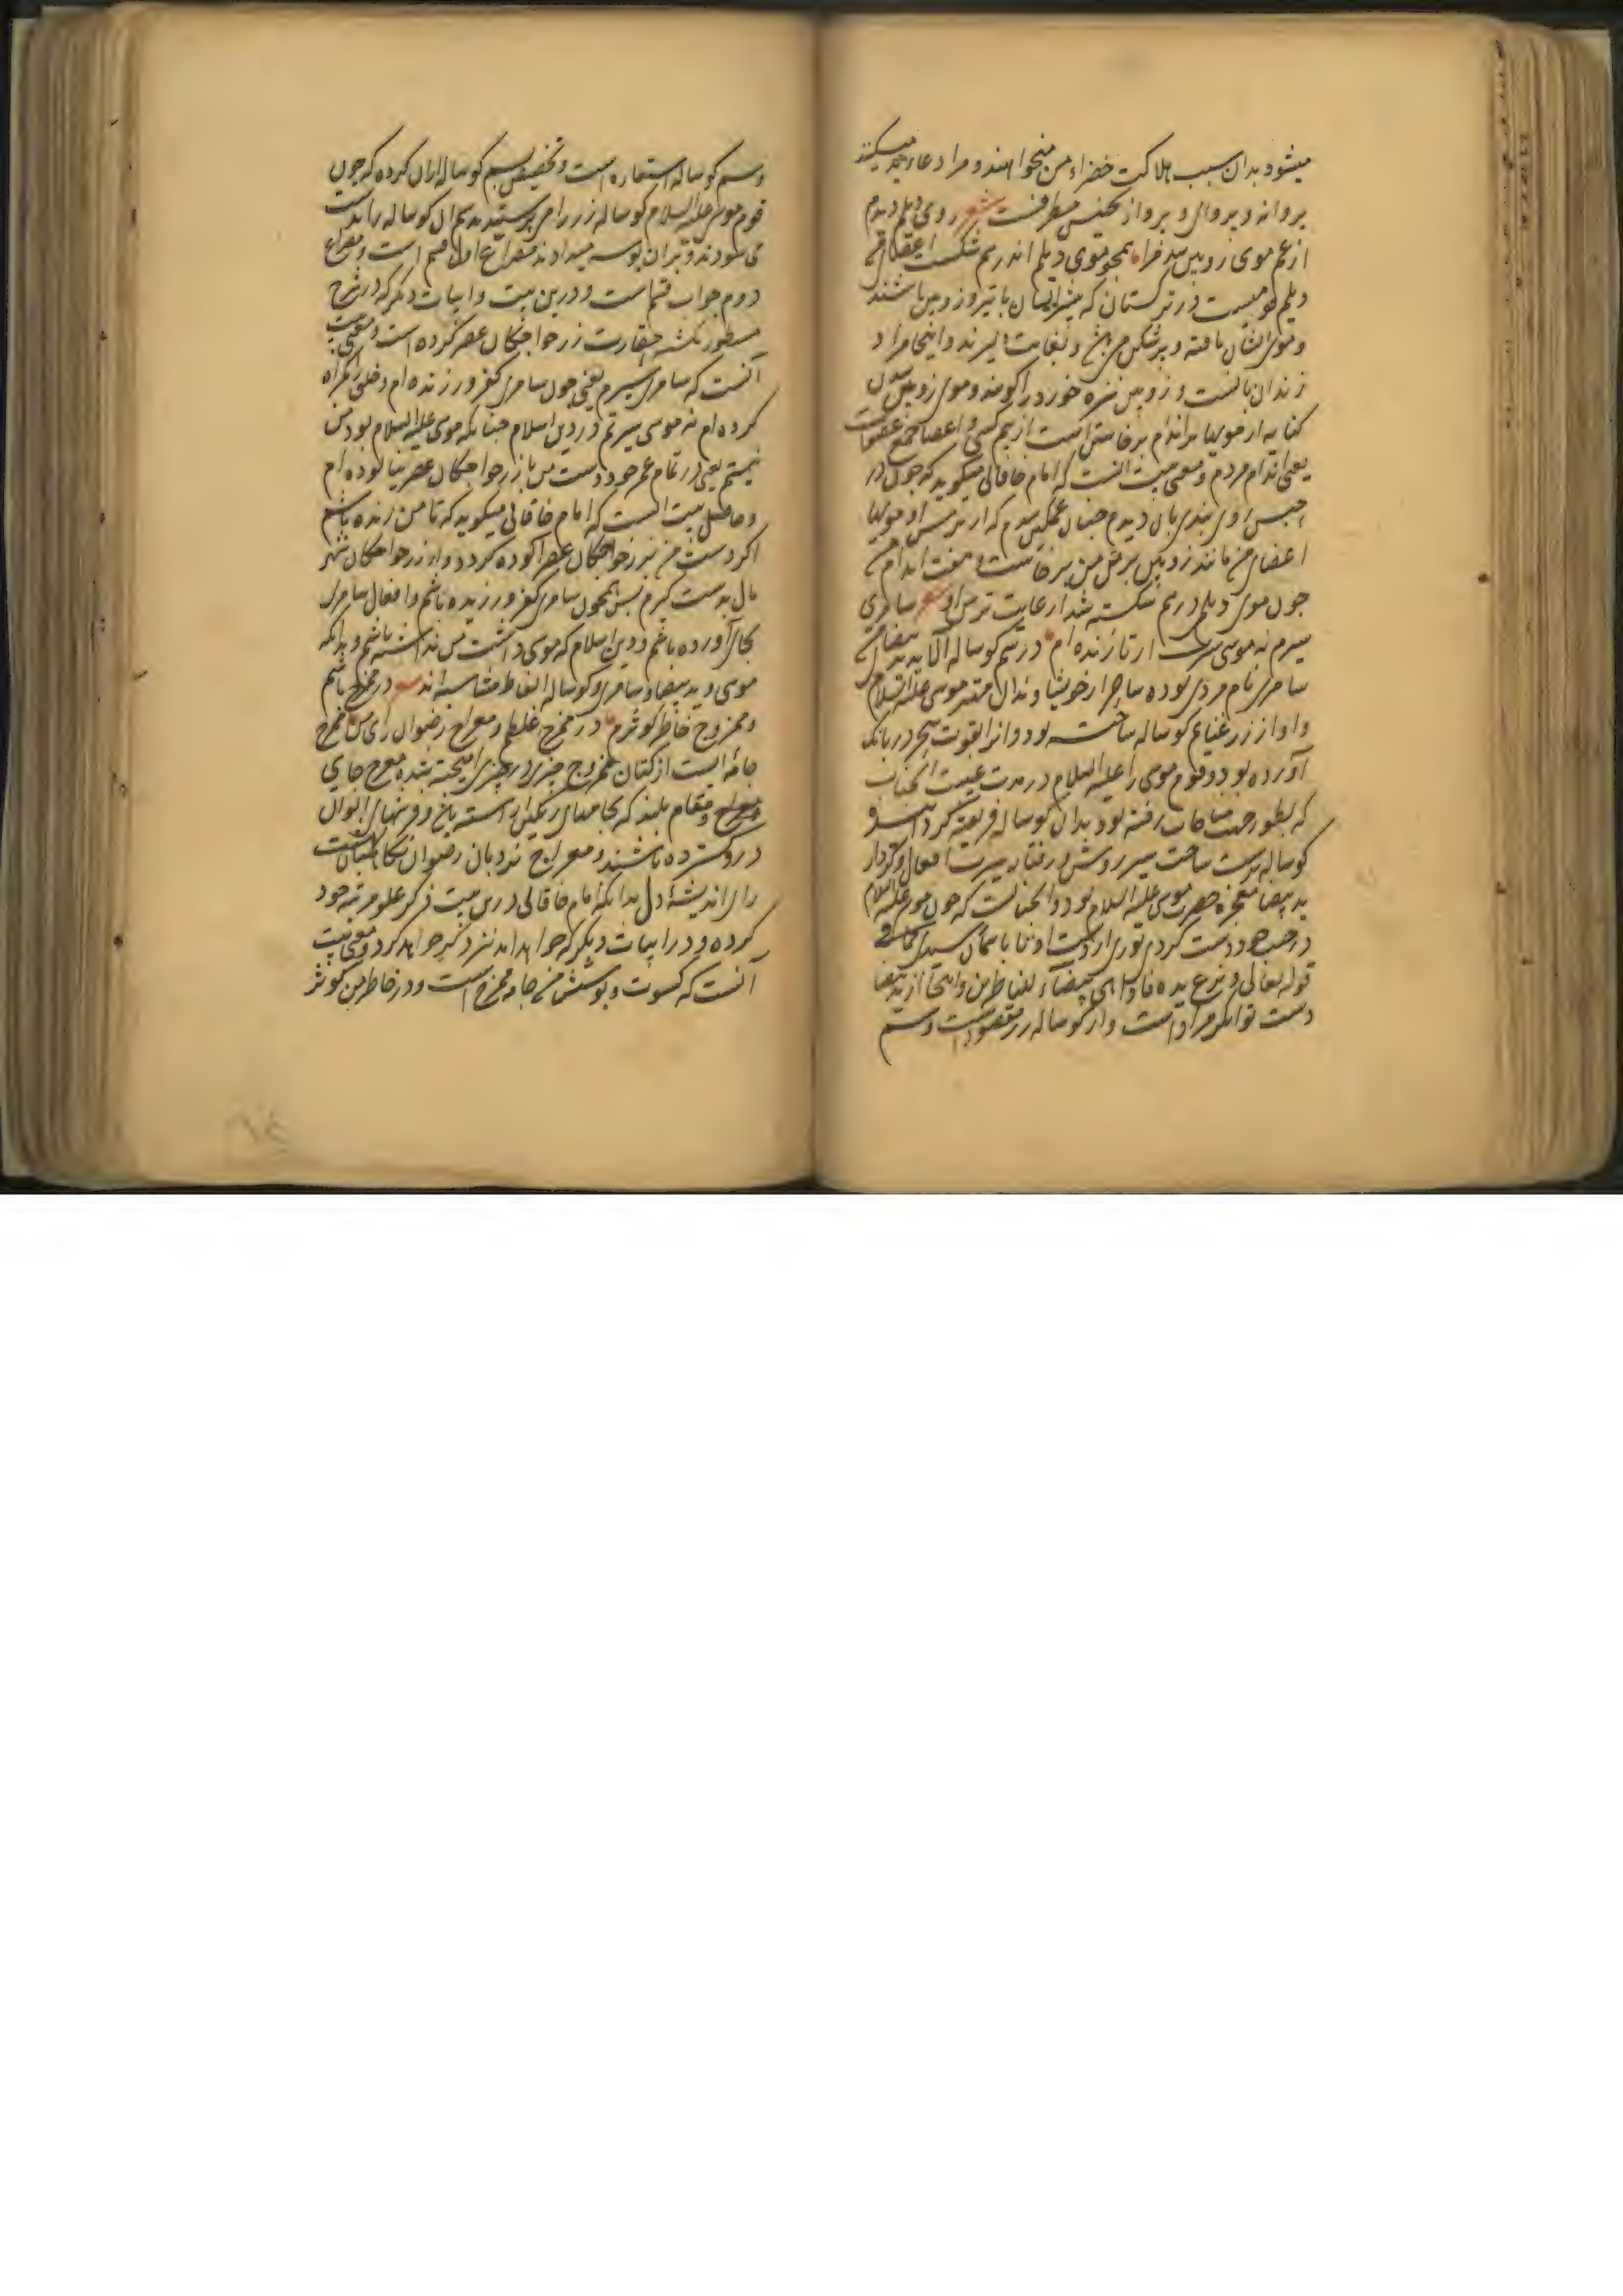 میشود بدان سبب هلاکت خضراء من میخواهند و مرا دعاء بد میکنند
پروانه و پروای و پرواز تجنیس مطرفست شعر روی دیلم دیدم
از غم موی زوبین شد مرا همچو موی دیلم اندر هم شکست اعضای من
دیلم قومیست در ترکستان که بیشتر ایشان با تیر و زوبین باشند
و موی ایشان بافته و پرشکن و اینجا مراد
زندان بانست و زوبین نیزه خورد را کویند و موی زوبین شدن
کنایه از مویها بر اندام برخاستن است از بیم کسی و اعضا جمع عضواست
یعنی اندام مردم و معنی بیت انست که امام خاقانی میکوید که چون در
حبس روی بندی بان دیدم چنان غمکین شدم که از ترس او مویها
اعضای من مانند زوبین بر تن من برخاست و هفت اندام من
چون موی دیلم درهم شکسته شد از غایت ترس او شعر سامری
سیرم نه موسی سیرت ار تا زنده ام در سم کوساله آلاید ید بیضای من
سامری نام مردی بوده ساحر از خویشاوندان مهتر موسی علیه السلام
و او از زر غنایم کوساله ساخته بود و انرا بقوت سحر در بانک
آورده بود و قوم موسی را علیه السلام در مدت غیبت آنجناب
که بطور جهت مناجات رفته بود بدان کوساله فریفته کردانید و
کوساله پرست ساخت سیر روش و رفتار سیرت افعال و کردار
ید بیضا معجزه حضرت موسی علیه السلام بود و انچنانست که چون موسی علیه السلام
در جیب خود دست کردی نوری از دست او تا باسمان رسیدی کما فی
قوله تعالی و نزع یده فاذا هی بیضاء للناظرین و اینجا از ید بیضا
دست توانکر مراد است و از کوساله زر مقصود است و سم
و سم کوساله استعاره است و تخصیص سم کوساله از ان کرده که چون
قوم موسی علیه السلام کوساله زر را می پرستیدند سم ان کوساله را بدست
می سودند و بران بوسه میدادند مصراع اول قسم است و مصراع
دوم جواب قسم است و درین بیت و ابیات دیکر که در شرح
مسطور نکشته حقارت زر خواجکان عصر کرده است و معنی بیت
آنست که سامری سیرم یعنی چون سامری کفر ورزنده ام و خلق را کمراه
کرده ام نه موسی سیرتم در دین اسلام چنانکه موسی علیه السلام بود من
نیستم یعنی در تمام عمر خود دست من باز زر خواجکان عصر نیالوده ام
و حاصل بیت انست که امام خاقانی میکوید که تا من زنده باشم
اکر دست من بزر خواجکان عصر آلوده کردد و از زر خواجکان شهر
مال بدست کیرم پس همچون سامری کفر ورزیده باشم و افعال سامری
بجای آورده باشم و دین اسلام که موسی داشت من نداشته باشم و بدانکه
موسی و ید بیضا و سامری و کوساله الفاظ متناسبه اند شعر در ممزج باشم
و ممزوج خاطر کوثرم در ممزج غلطم و معراج رضوان رای من ممزج
جامه ایست از کتان ممزوج چیزی در چیزی امیخته شده
و معراج و مقام بلند که بجامهای رنکین اراسته باغ و فرشهای الوان
در و کسترده باشند و معراج نردبان رضوان نکاهبان بهشت
رای اندیشهٔ دل بدانکه امام خاقانی درین بیت ذکر علو مرتبه خود
کرده و در ابیات دیکر که خواهد امد نیز ذکر خواهد کرد و معنی بیت
آنست که کسوت و پوشش من جامه ممزج است و در خاطر من کوثر